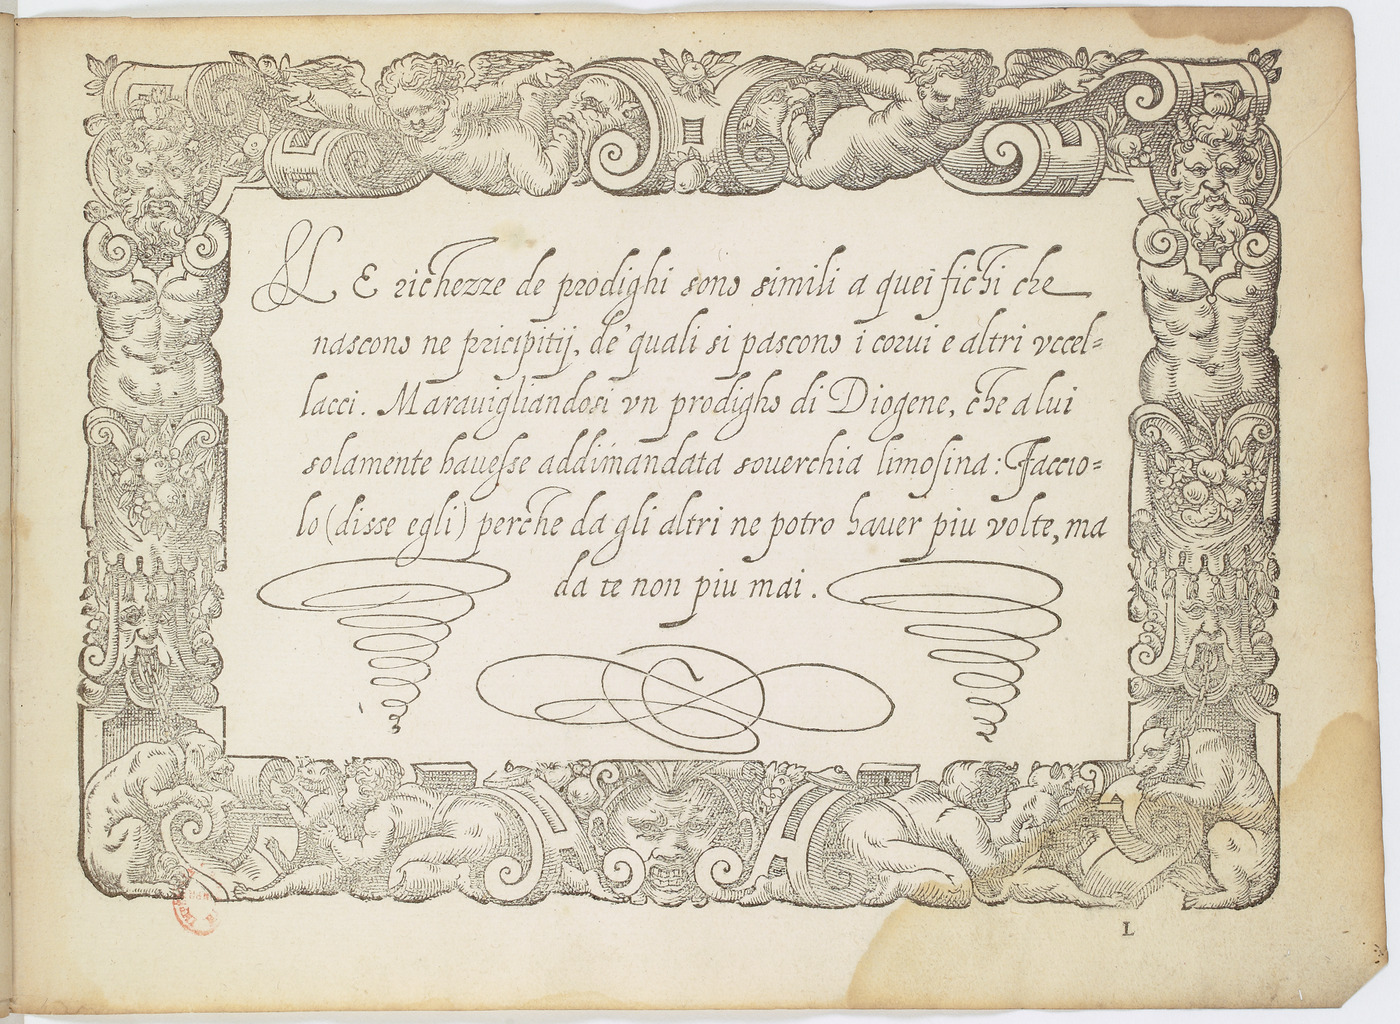 LE richezze de prodighi sono simili a quei fichi che
nascono ne pricipitij, de' quali si pascono i corui e altri vccel=
lacci. Marauigliandosi vn prodigho di Diogene, che a lui
solamente hauesse addimandata souerchia limosina: Faccio=
lo (disse egli) perche da gli altri ne potro hauer piu volte, ma
da te non piu mai.
L